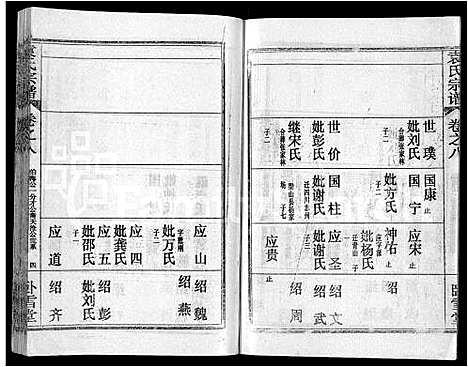 袁氏宗谱
卷之八
世璞
妣刘氏
合葬张家林
子二
世价
妣彭氏
继宋氏
合葬张家林
子二
国康
止
国宁
妣方氏
子二
国柱
妣谢氏
子二
应宋
止
神佑
止
妣杨氏
应圣
妣谢氏
应贵
止
绍文
绍武
绍周
卧雪堂
袁氏宗谱
卷之八
四
应山
妣万氏
子一
应四
妣龚氏
应五
妣邵氏
子二
应道
绍魏
绍燕
绍彭
妣刘氏
绍齐
卧雪堂